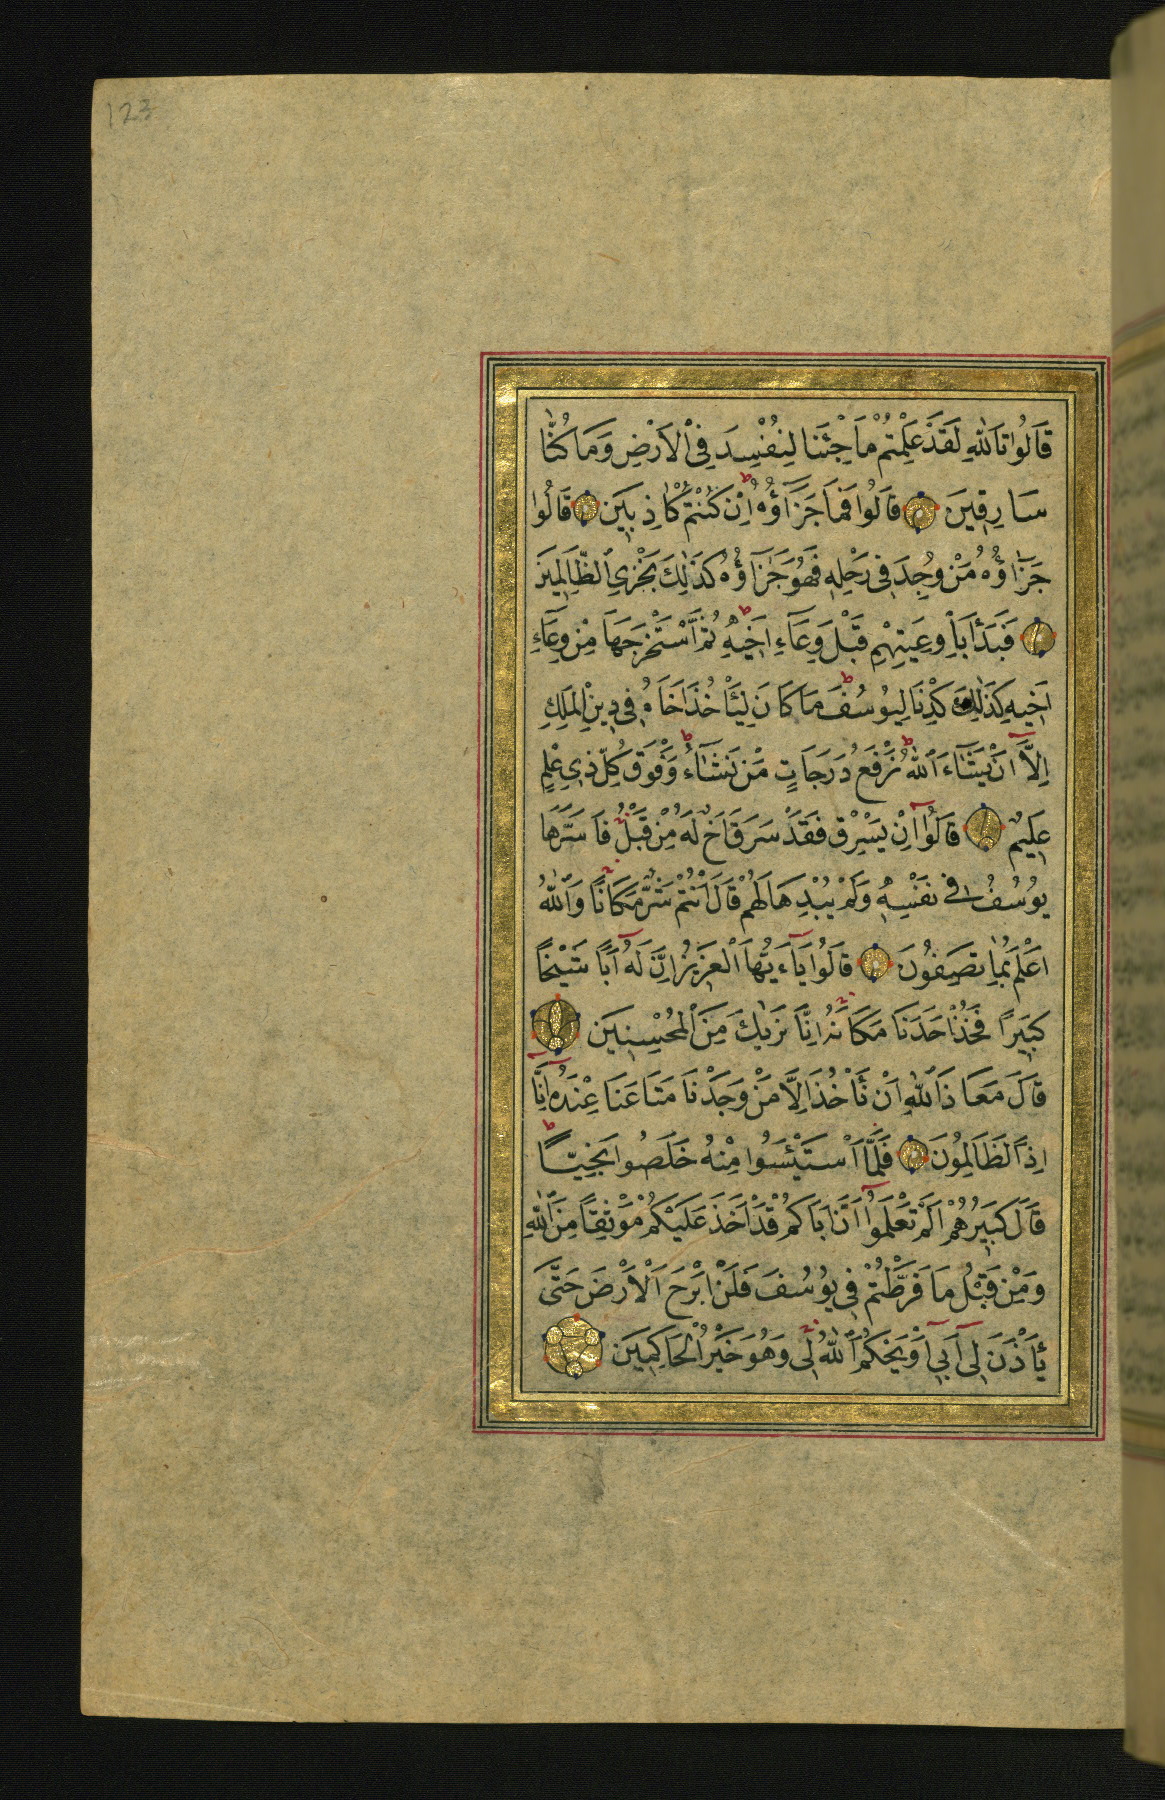 123
قَالُوا تَاللّٰهِ لَقَدْ عَلِمْتُمْ مَا جِئْنَا لِنُفْسِدَ فِي الْاَرْضِ وَمَا كُنَّا
سَارِقِينَ قَالُوا فَمَا جَزَآؤُهُ اِنْ كُنْتُمْ كَاذِبِينَ قَالُوا
جَزَآؤُهُ مَنْ وُجِدَ فِي رَحْلِهِ فَهُوَ جَزَآؤُهُ كَذٰلِكَ نَجْزِي الظَّالِمِينَ
فَبَدَاَ بِاَوْعِيَتِهِمْ قَبْلَ وِعَآءِ اَخِيهِ ثُمَّ اسْتَخْرَجَهَا مِنْ وِعَآءِ
اَخِيهِ كَذٰلِكَ كِدْنَا لِيُوسُفَ مَا كَانَ لِيَأْخُذَ اَخَاهُ فِي دِينِ الْمَلِكِ
اِلَّا اَنْ يَشَآءَ اللّٰهُ نَرْفَعُ دَرَجَاتٍ مَنْ نَشَآءُ وَفَوْقَ كُلِّ ذِي عِلْمٍ
عَلِيمٌ قَالُوا اِنْ يَسْرِقْ فَقَدْ سَرَقَ اَخٌ لَهُ مِنْ قَبْلُ فَاَسَرَّهَا
يُوسُفُ فِي نَفْسِهِ وَلَمْ يُبْدِهَا لَهُمْ قَالَ اَنْتُمْ شَرٌّ مَكَانًا وَاللّٰهُ
اَعْلَمُ بِمَا تَصِفُونَ قَالُوا يَآءَيُّهَا الْعَزِيزُ اِنَّ لَهُ اَبًا شَيْخًا
كَبِيرًا فَخُذْ اَحَدَنَا مَكَانَهُ اِنَّا نَرٰيكَ مِنَ الْمُحْسِنِينَ
قَالَ مَعَاذَ اللّٰهِ اَنْ نَأْخُذَ اِلَّا مَنْ وَجَدْنَا مَتَاعَنَا عِنْدَهُ اِنَّا
اِذًا لَظَالِمُونَ فَلَمَّا اسْتَيْئَسُوا مِنْهُ خَلَصُوا نَجِيًّا
قَالَ كَبِيرُهُمْ اَلَمْ تَعْلَمُوا اَنَّ اَبَاكُمْ قَدْ اَخَذَ عَلَيْكُمْ مَوْثِقًا مِنَ اللّٰهِ
وَمِنْ قَبْلُ مَا فَرَّطْتُمْ فِي يُوسُفَ فَلَنْ اَبْرَحَ الْاَرْضَ حَتّٰى
يَأْذَنَ لِي اَبِي اَوْ يَحْكُمَ اللّٰهُ لِي وَهُوَ خَيْرُ الْحَاكِمِينَ